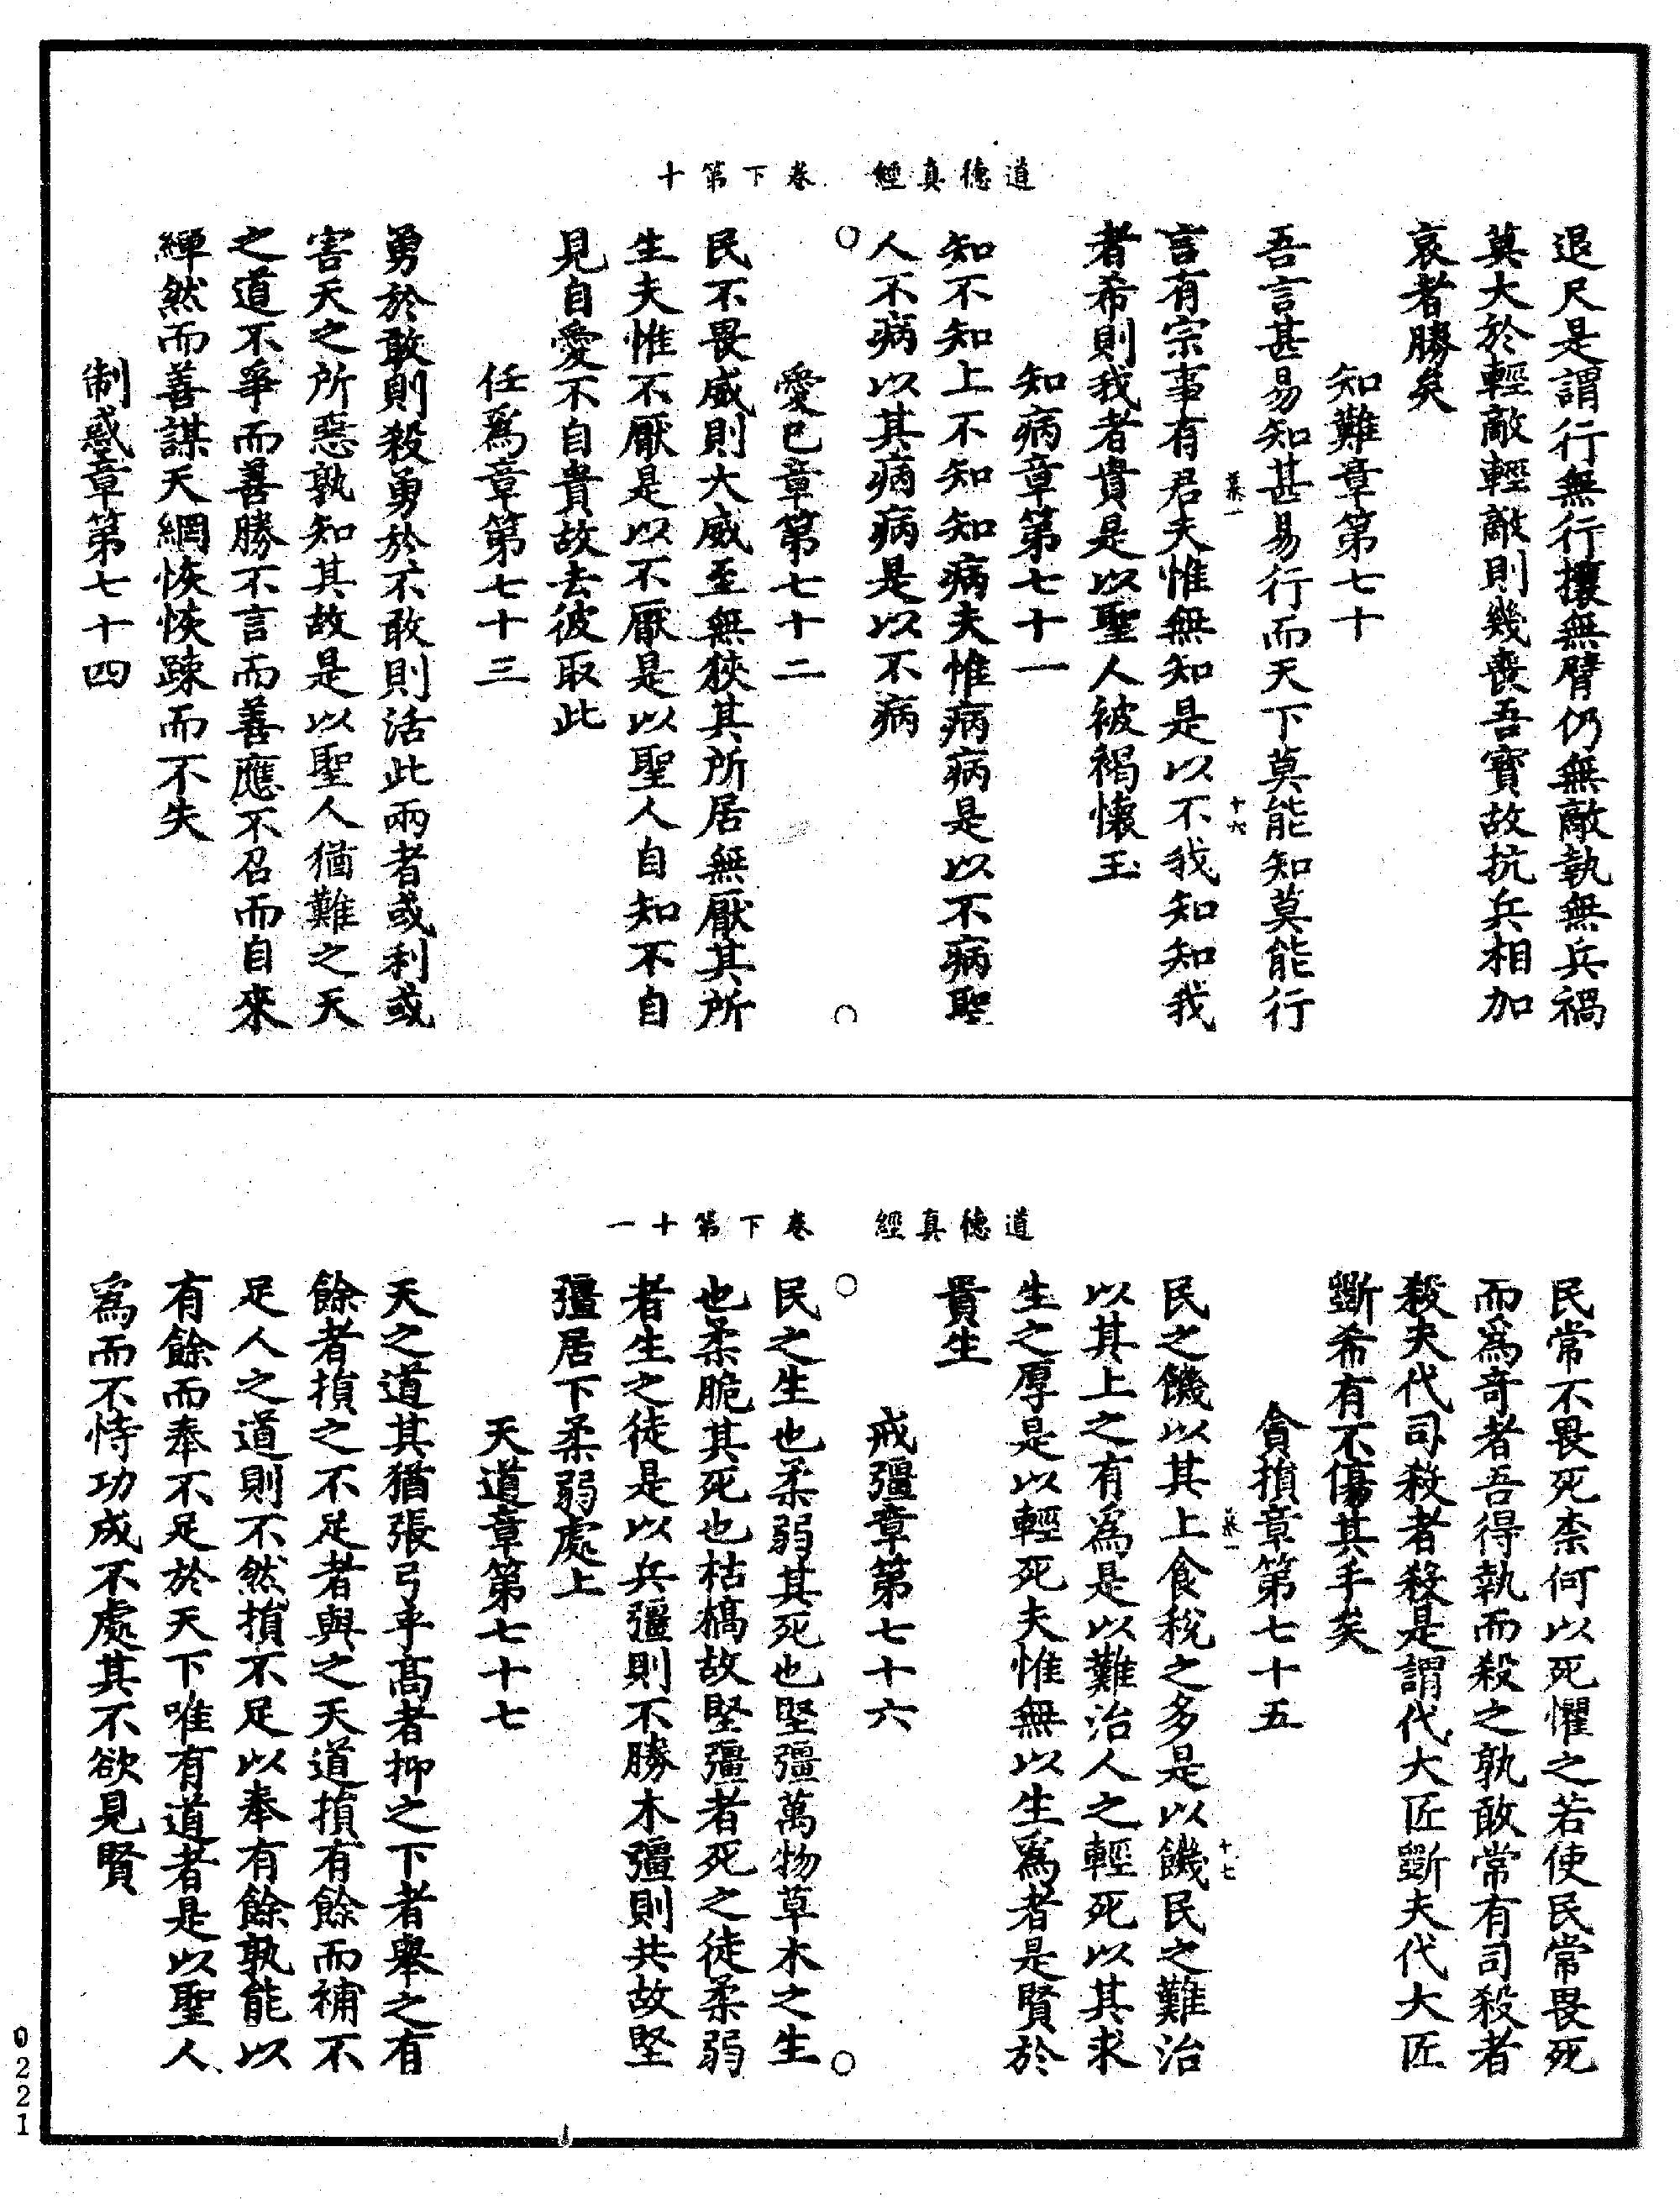 道德真經 卷下第十
退尺是謂行無行攘無臂仍無敵執無兵禍
莫大於輕敵輕敵則幾喪吾寳故抗兵相加
哀者勝矣
知難章第七十
吾言甚易知甚易行而天下莫能知莫能行
十六
言有宗事有君夫惟無知是以不我知知我
者希則我者貴是以聖人被褐懷玉
知病章第七十一
知不知上不知知病夫惟病病是以不病聖
人不病以其病病是以不病
愛已章第七十二
民不畏威則大威至無狹其所居無厭其所
生夫惟不厭是以不厭是以聖人自知不自
見自愛不自貴故去彼取此
任爲章第七十三
勇於敢則殺勇於不敢則活此兩者或利或
害天之所惡孰知其故是以聖人猶難之天
之道不爭而善勝不言而善應不召而自來
繟然而善謀天網恢恢踈而不失
制惑章第七十四
道德真經 卷下第十一
民常不畏死柰何以死懼之若使民常畏死
而爲奇者吾得執而殺之孰敢常有司殺者
殺夫代司殺者殺是謂代大匠斲夫代大匠
斲希有不傷其手矣
貪損章第七十五
十七
民之饑以其上食稅之多是以饑民之難治
以其上之有爲是以難治人之輕死以其求
生之厚是以輕死夫惟無以生爲者是賢於
貴生
戒彊章第七十六
民之生也柔弱其死也堅彊萬物草木之生
也柔脆其死也枯槁故堅彊者死之徒柔弱
者生之徒是以兵彊則不勝木彊則共故堅
彊居下柔弱處上
天道章第七十七
天之道其猶張弓乎高者抑之下者舉之有
餘者損之不足者與之天道損有餘而補不
足人之道則不然損不足以奉有餘孰能以
有餘而奉不足於天下唯有道者是以聖人
爲而不恃功成不處其不欲見賢
0221